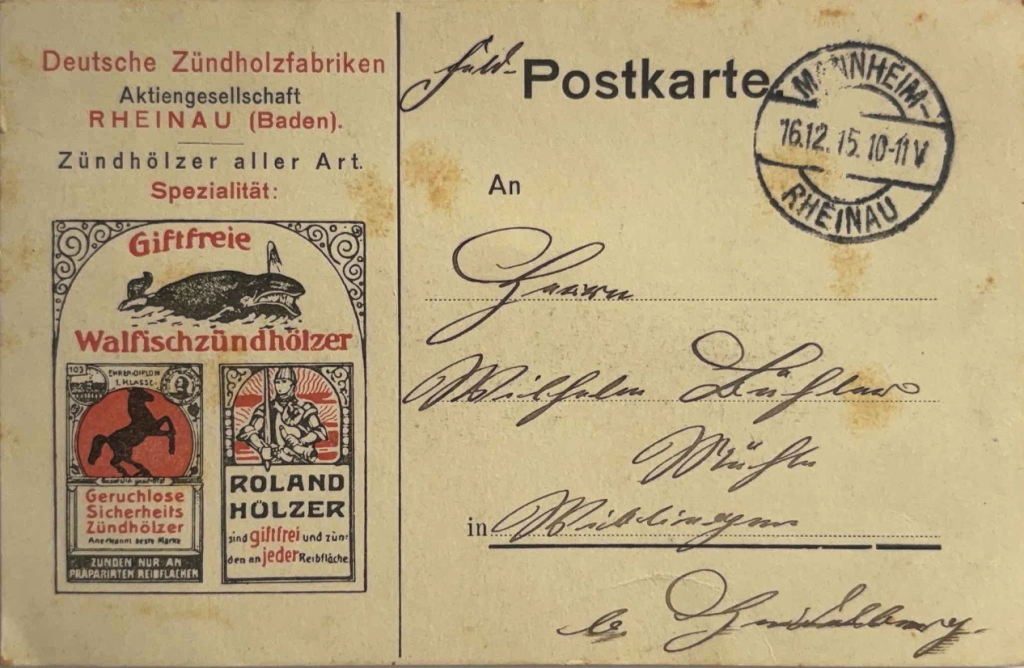 Deutsche Zündholzfabriken
Aktiengesellschaft
RHEINAU (Baden).
Zündhölzer aller Art.
Spezialität:
Giftfreie
Walfischzündhölzer
103
EHREN-DIPLOM
I. KLASSE
Geruchlose
Sicherheits
Zündhölzer
Anerkannt beste Marke
ZÜNDEN NUR AN
PRÄPARIRTEN REIBFLÄCHEN
ROLAND
HÖLZER
sind giftfrei und zün-
den an jeder Reibfläche
Feld-Postkarte
MANNHEIM-
16.12.15.10-11V
RHEINAU
An
Herrn
Wilhelm Bühler
Mühle
in Wieblingen
b/ Heidelberg.